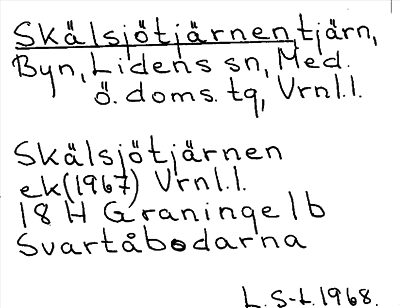 Skälsjötjärnen, tjärn,
Byn, Lidens sn, Med.
ö. doms. tg, Vrnl.l.
Skälsjötjärnen
ek(1967) Vrnl.l.
18 H Graninge 1b
Svartåbodarna
L.S-L.1968.